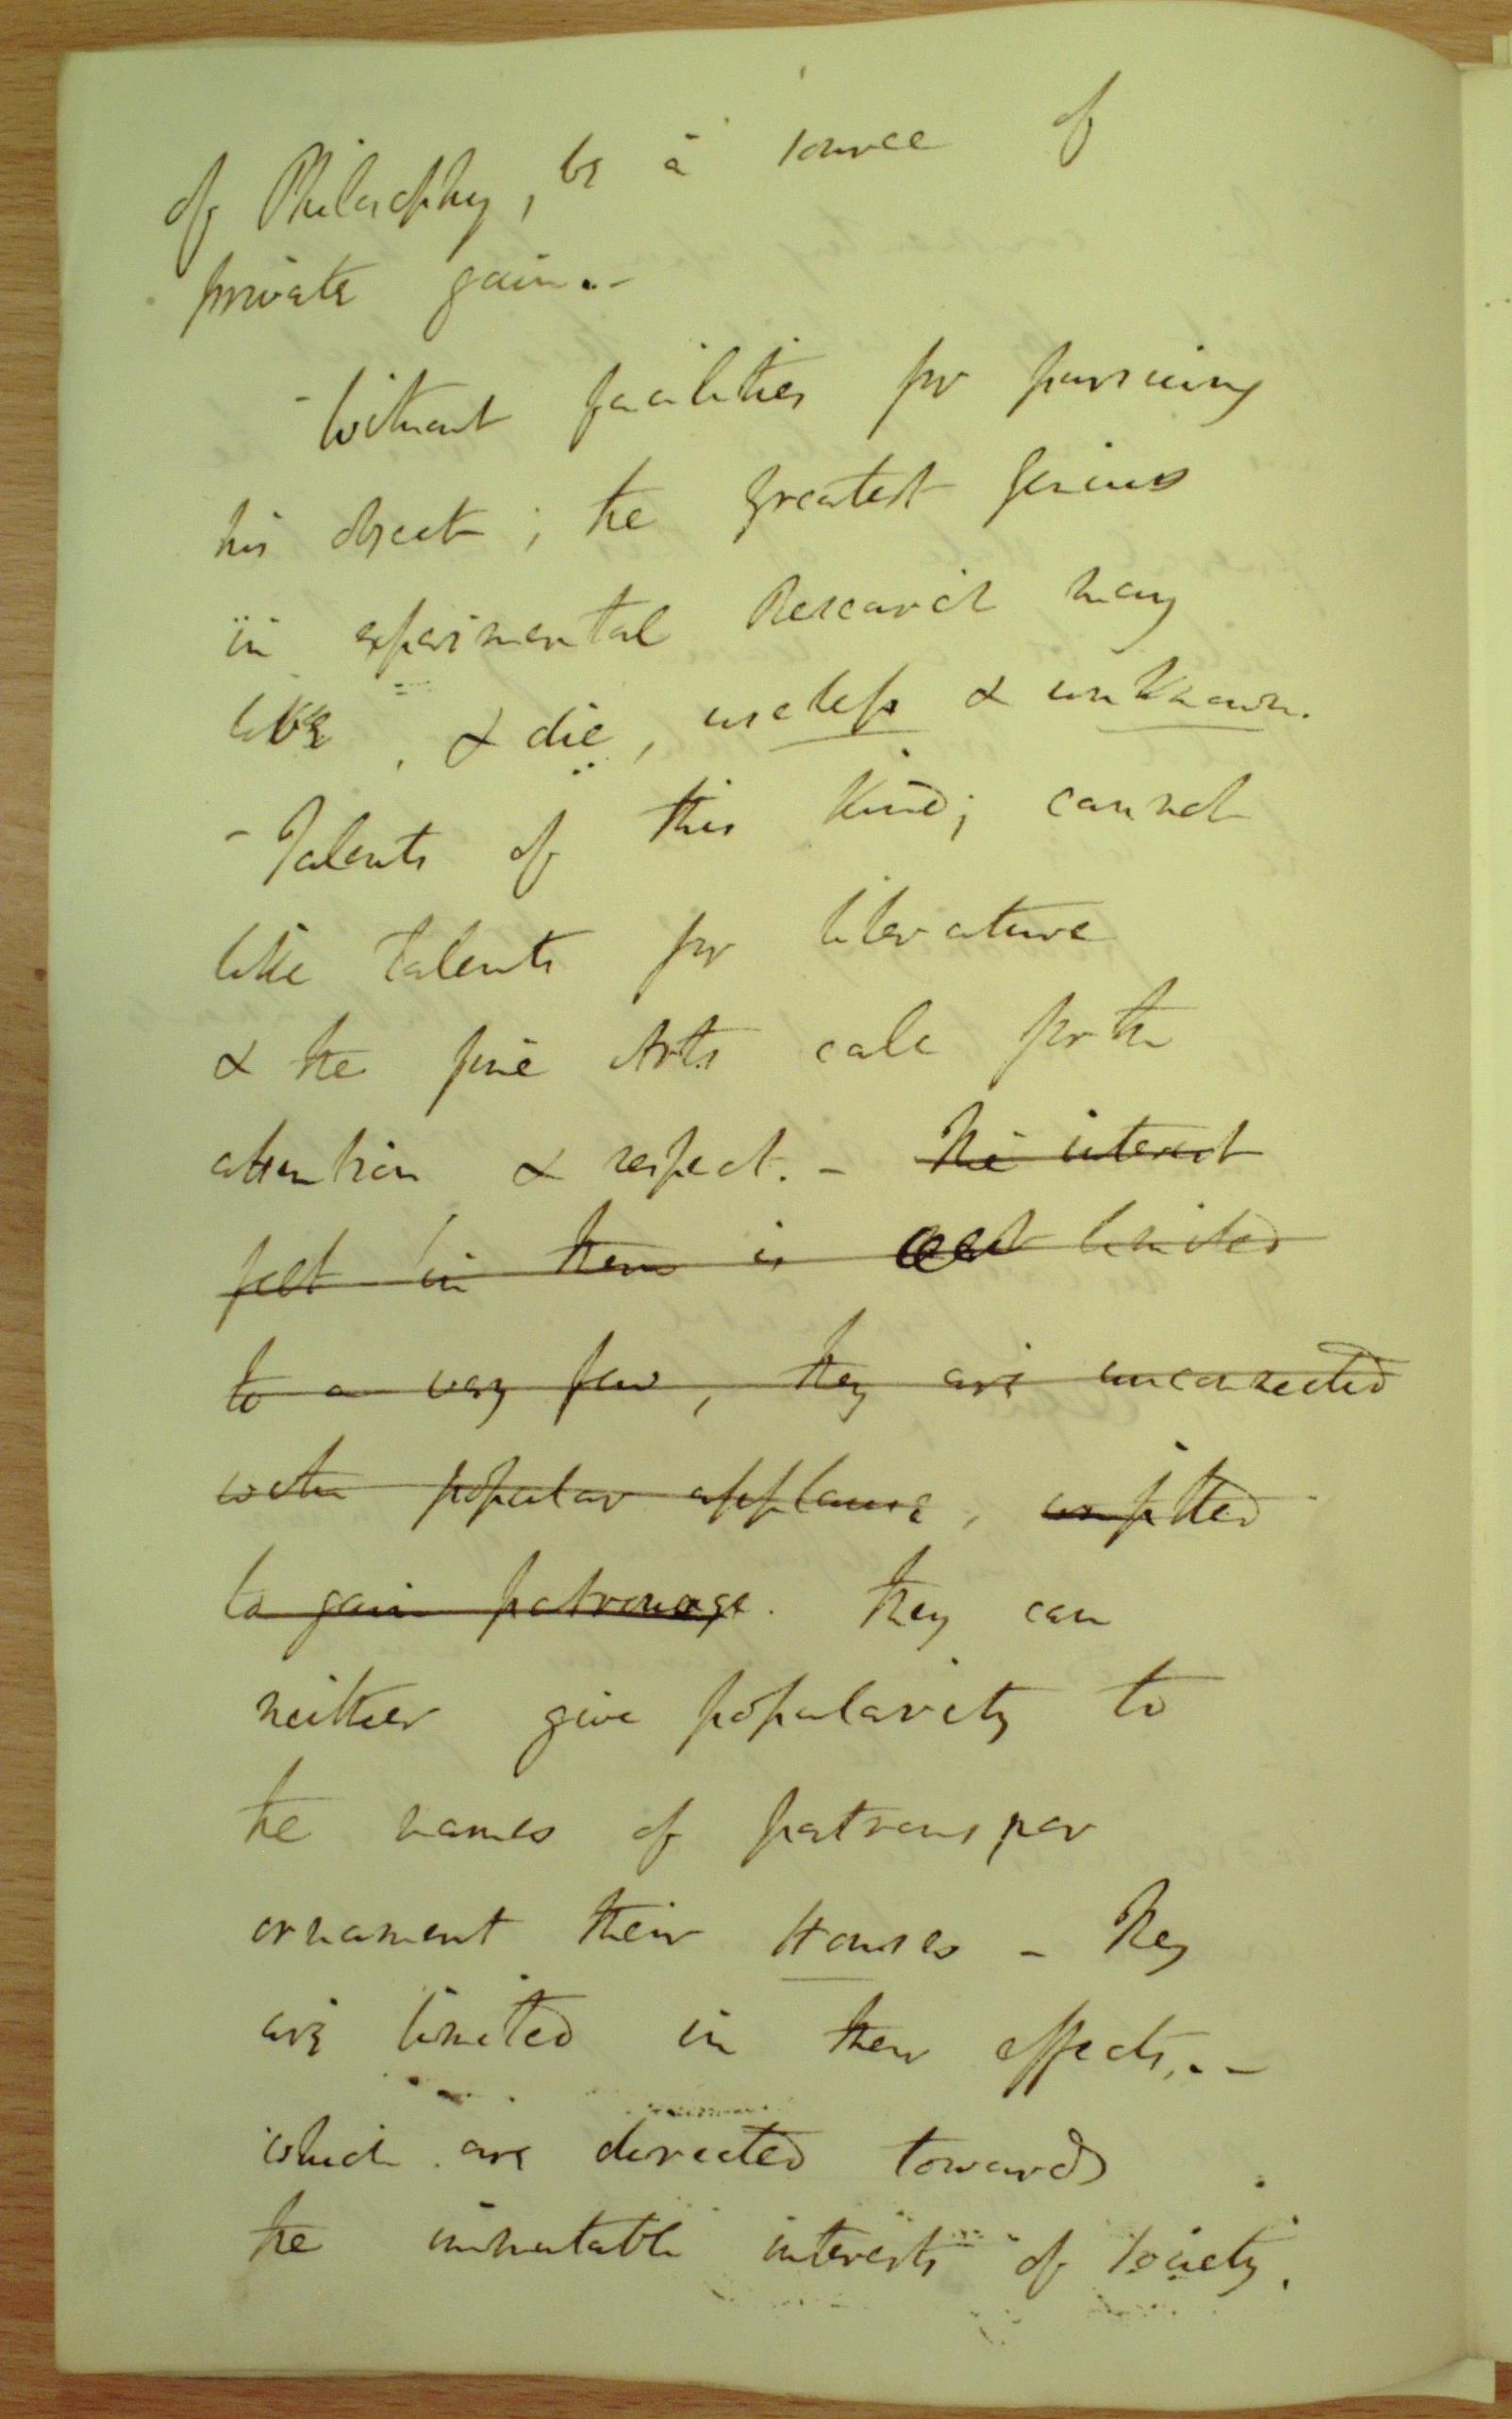 of Philosophy, be a source of
private gain. -
- Without facilities for pursuing
his object; the greatest genius
in experimental Research may
live, & die, useless & unknown.
- Talents of this kind; cannot
like talents for literature
& the fine Arts call forth
attention & respect. - The interest
felt in them is limited
to a very few, they are unconnected
with popular applause, unfitted
to gain patronage. They can
neither give popularity to
the names of patrons nor
ornament their Houses - They
are limited in their effects. -
which are directed towards
the immutable interests of Society.